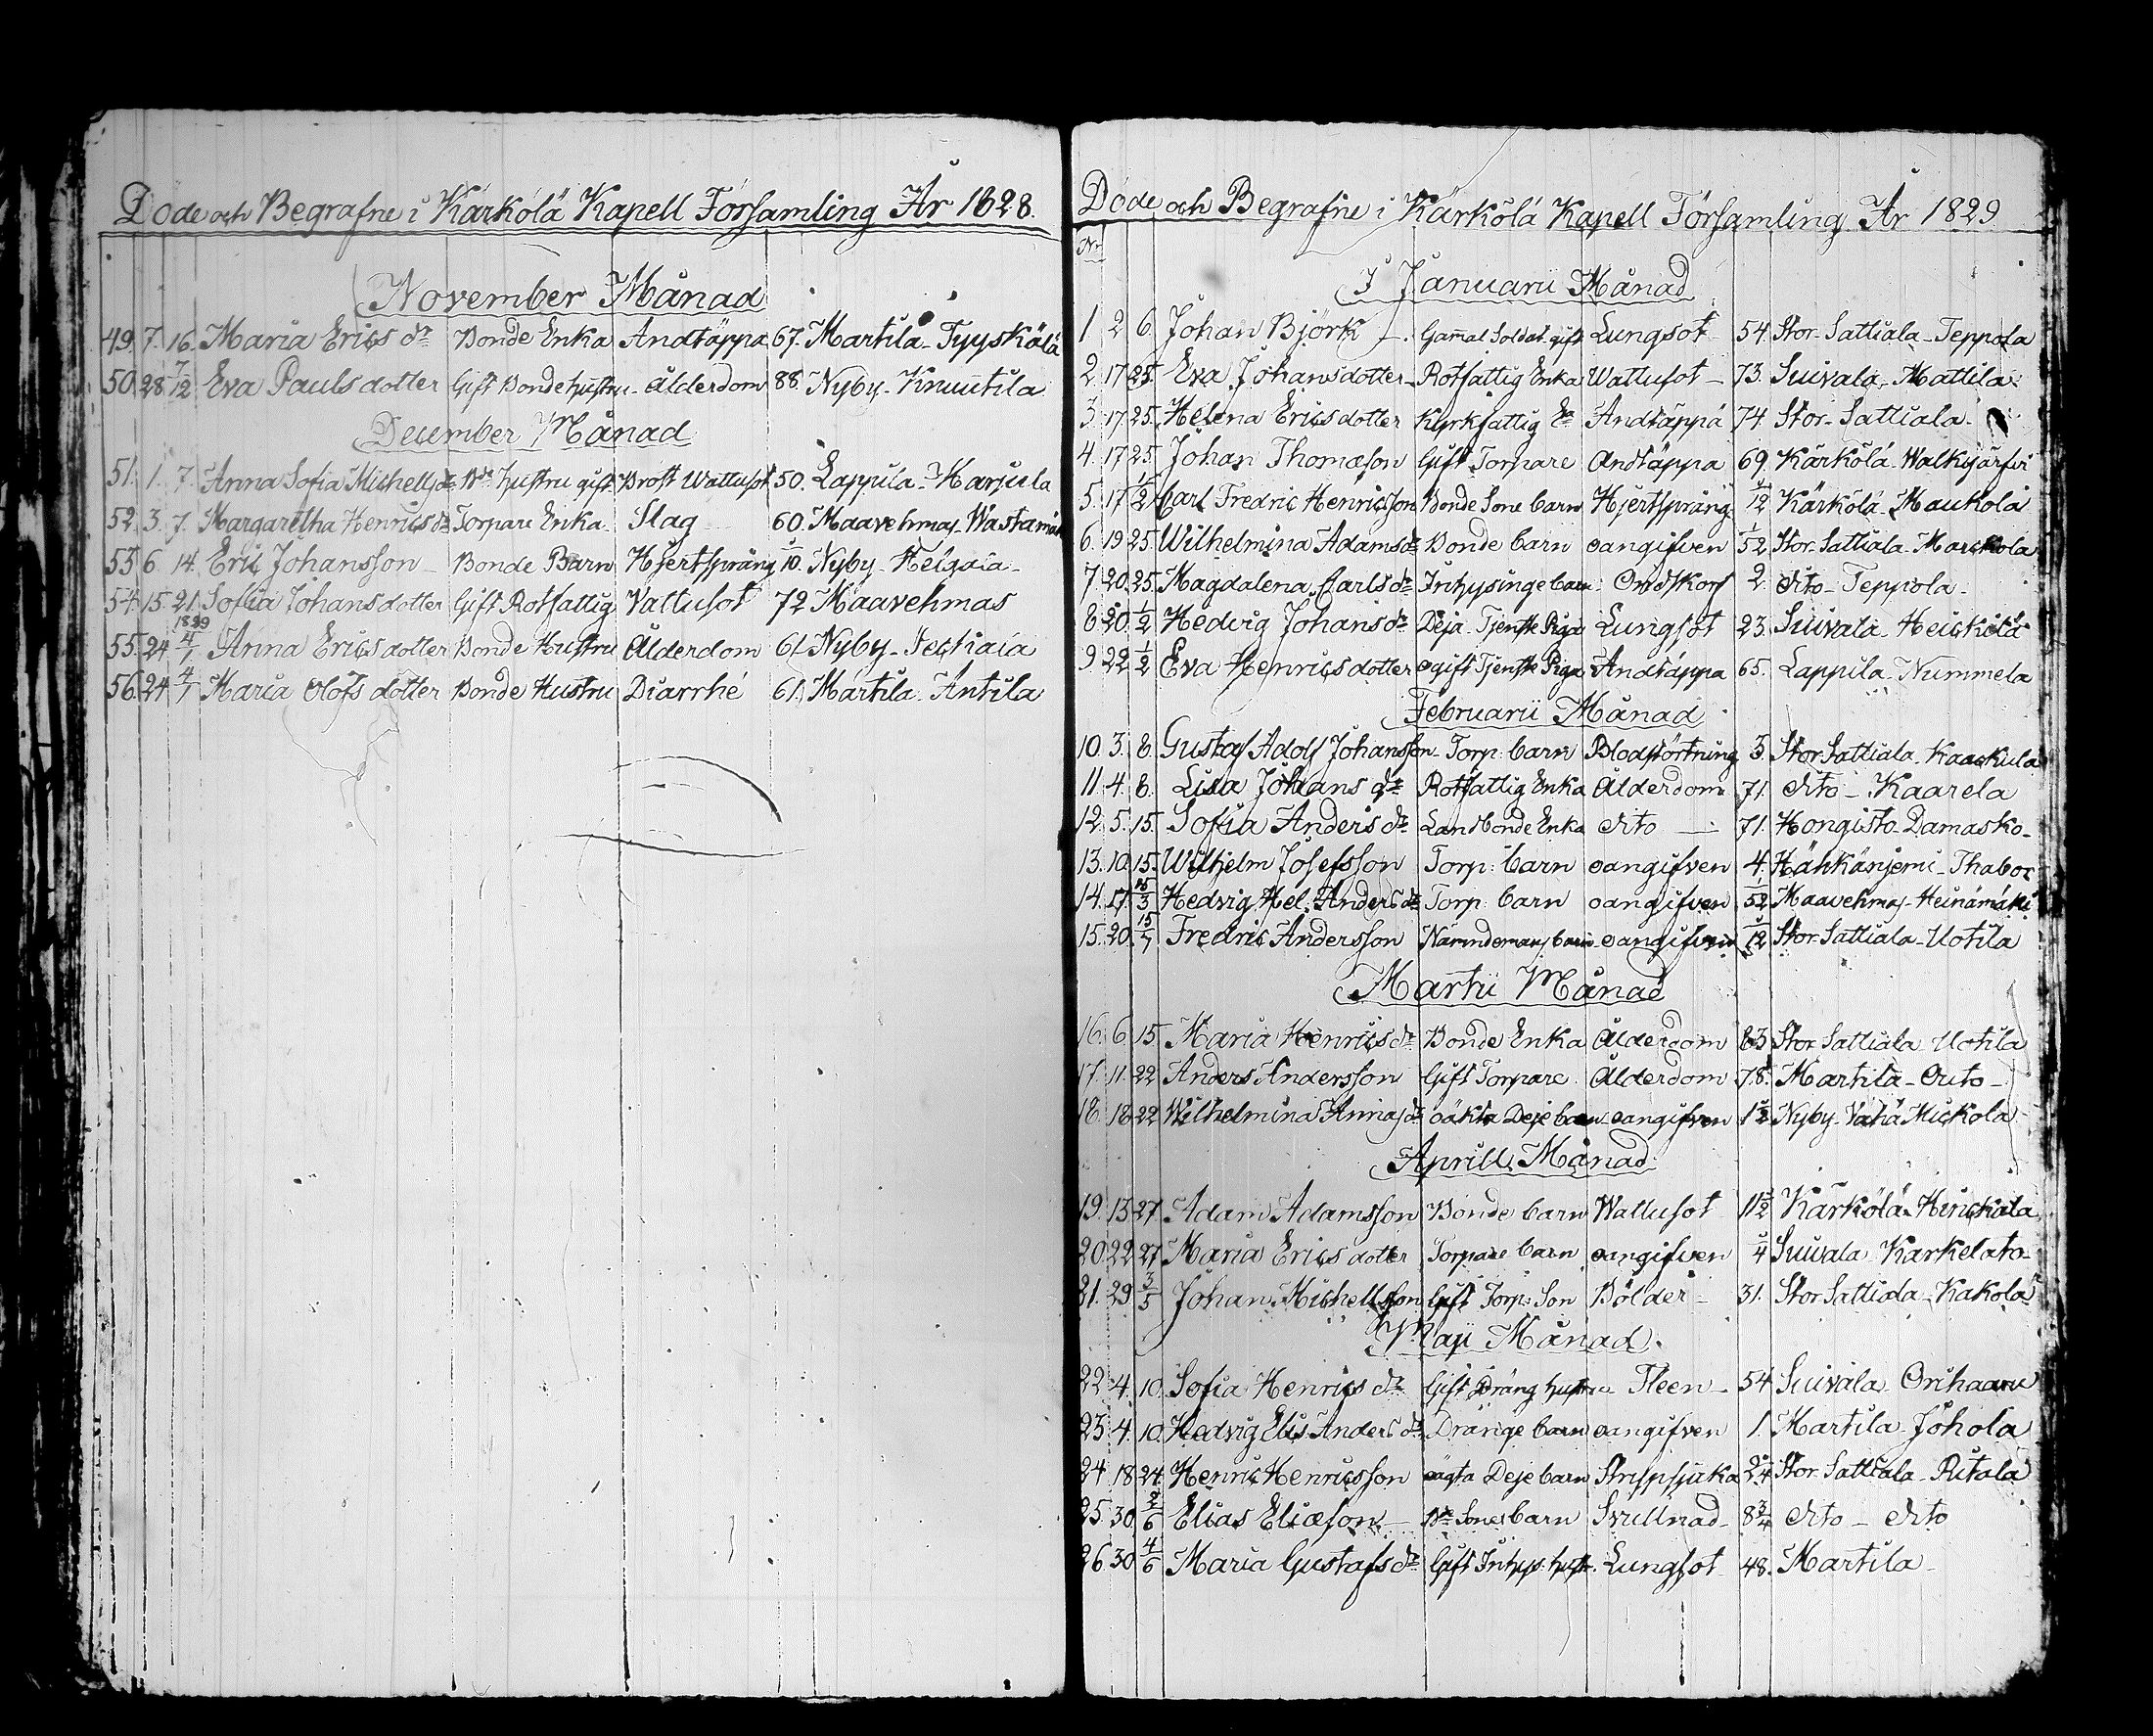 Döde och Begrafne i Kärkölä Kapell Församling År 1828.
November Månad
49. 7. 16. Maria Erics dr Bonde Enka Andtäppa 67. Martila - Tyyskälä
50. 28 7/12 Eva Pauls dotter Gift Bonde hustru - Ålderdom 88. Nyby - Knuutila
December Månad
51. 1. 7. Anna Sofia Michelsdr Bde hustru gift Brost Wattusot 50. Lappila - Harjula
52. 3. 7. Margaretha Henricsdr Torpare Enka Slag 60. Maavehmas
53 6 14. Eric Johansson Bonde Barn Hjertsprång 1/10. Nyby - Heigaia
54. 15. 21. Sofia Johans dotter Gift Rotfattig Vattusot 72 Maavehmas
1829
55. 24 4/1 Anna Erics dotter Bonde Hustru Ålderdom 61. Nyby -
56. 24 4/1 Maria Olofs dotter Bonde Hustru Diarrhé 61. Martila - Antila
Döde och Begrafne i Kärkölä Kapell Församling År 1829
Nr
I Januarii Månad
1 2 6. Johan Björk - Gamal Soldat gift Lungsot 54. Stor-Sattiala - Teppola
2. 17 25. Eva Johansdotter - Rotfattig Enka Wattusot - 73. Suivala - Mattila
3. 17. 25. Helena Erics dotter Kyrkfattig Ea Andtäppa 74. Stor-Sattiala -
4. 17 25. Johan Thomæson Gift Torpare Andtäppa 69. Kärkölä - Walkijärfvi
5. 17 1/2 Carl Fredric Henricsson Bonde Sone barn Hjertsprång 1/12 Kärkölä - Maukola
6. 19 25. Wilhelmina Adamsdr Bonde barn oangifven 1/52 Stor-Sattiala - Marckola
7 20. 25. Magdalena Carlsdr Inhysinge barn Ondskorf 2. dito - Teppola -
8 20. 1/2 Hedvig Johansdr Deja Tjenste Piga Lungsot 23. Suivala - Heickilä
9 22 1/2 Eva Henrics dotter ogift Tjenste Piga Andtäppa 65. Lappila - Nummela
Februarii Månad
10. 3. 8. Gustaf Adolf Johansson - Torp: barn Blodstörtning 3. Stor Sattiala - Kaackula
11. 4. 8. Lisa Johans dr Rotfattig Enka Ålderdom 71. dito - Kaarela
12. 5. 15. Sofia Anders dr Lanbonde Enka dito 71. Hongisto - Damasko -
13. 10. 15. Wilhelm Josefsson Torp: barn oangifven 4. Hähkäniemi - Thabor
14. 17. 15/3 Hedvig Hel. Anders dr Torp: barn oangifven 1/52 Maavehmas - Heinämäki
15. 20. 15/7 Fredric Andersson oangifven 1/12 Stor-Sattiala - Uotila
Martii Månad
16. 6. 15. Maria Henricsdr Bonde Enka Ålderdom 83 Stor Sattiala - Uotila
17. 11. 22 Anders Andersson Gift Torpare Ålderdom 78. Martila - Outo -
18. 18 22 Wilhelmina Annasdr oäkta Deje barn - oangifven 1 1/2 Nyby - Vähä Mickola
Aprill Månad
19. 13 27. Adam Adamsson Bonde barn Wattusot 11 1/2 Kärkölä Hirickala
20. 22 27. Maria Erics dotter Torpare barn oangifven 1/4 Suivala - Karkelato -
21. 29. 3/5 Johan Michelsson Gift Torp: Son Bölder - 31. Stor Sattiala - Kakola
Maji Månad
22 4. 10. Sofia Henrics dr Gift Dräng hustru Fleen - 54 Suivala - Orihaaru
23. 4. 10. Hedvig Elis: Anders dr Dränge barn oangifven 1. Martila - Johola
24 18 24. Henric Henricsson oägta Deje barn Strypsjuka Stor-Sattiala - Ritala
25. 30. 2/6 Elias Eliæson - Bde Sones barn Svullnad - 8 3/4 dito - dito
26. 30 4/6 Maria Gustafs dr Gift Inhys: hustr. Lungsot 48. Martila -